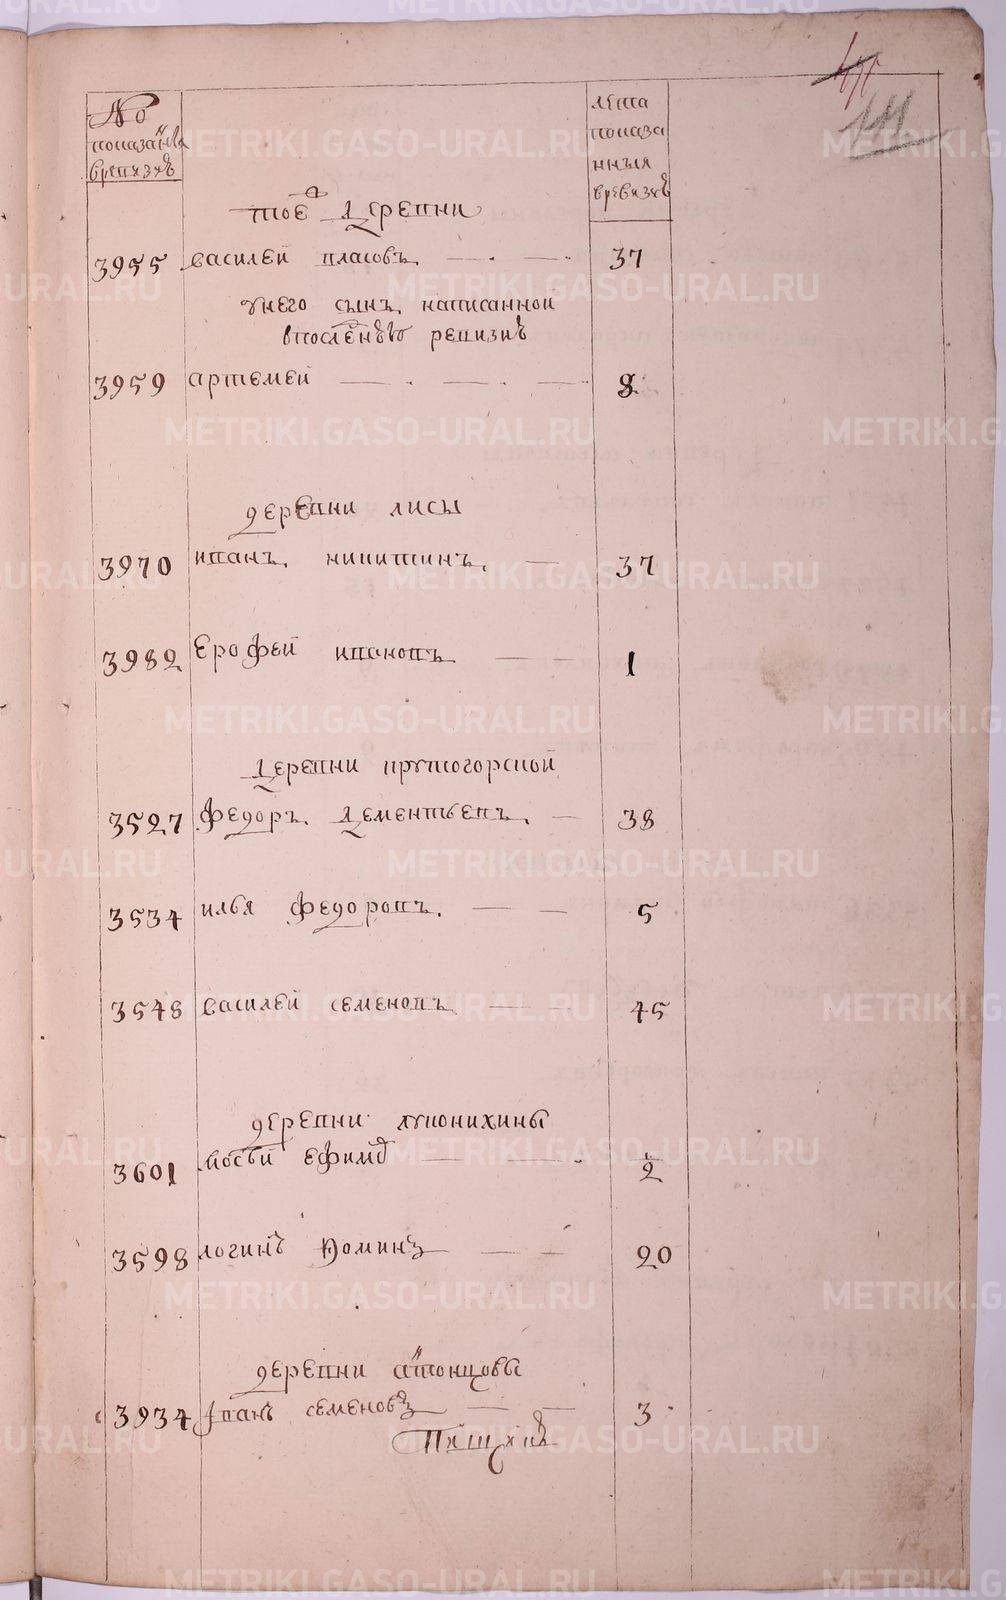 №
показанья
вревизиѣ
лета
показа
нныя
вревизиѣ
тоѣ деревни
3955 василей власовъ 37
унего сынъ написанной
впоследнею ревизиѣ
3959 артемей 8
деревни лисы
3970 иванъ никитинъ 37
3982 ерофей ивановъ 1
деревни крутогорской
3527 федоръ дементьевъ 38
3534 илья федоровъ 5
3548 василей семеновъ 45
деревни луконихины
3601 мосѣй ефимов 2
3598 логинъ фоминъ 20
деревни
3934 иванъ семеновъ 3
METRIKI.GASO-URAL.RU